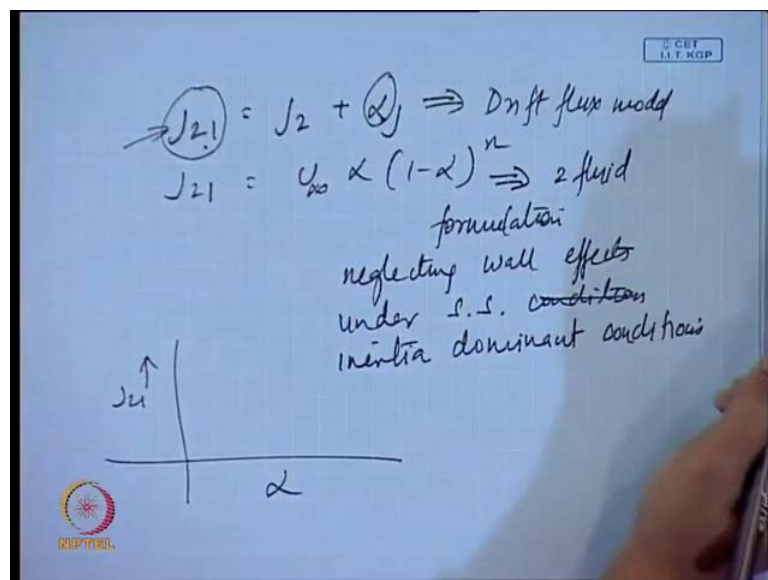 © CET
I.I.T. KGP
J21 = J2 + αj ⇒ Drift flux model
J21 = U∞ α (1-α)^n ⇒ 2 fluid
formulation
neglecting wall effects
under s.s. condition
inertia dominant conditions
J21
α
NPTEL